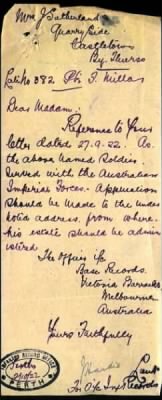 Mrs J Sutherland
Quarry Side
Castletown
By. Thurso
Est. No 382 Pte. J. Millar
Dear Madam.
Reference to your
letter dated 27.9.22. As
the above named Soldier.
Served with the Australian
Imperial Forces. Application
should be made to the under
noted address, from where
his estate should be admin
istered
The Officer i/c
Base Records.
Victoria Barracks
Melbourne
Australia
Yours Faithfully
Lieut
For O i/c Inf Records
RECORD OFFICE
PERTH